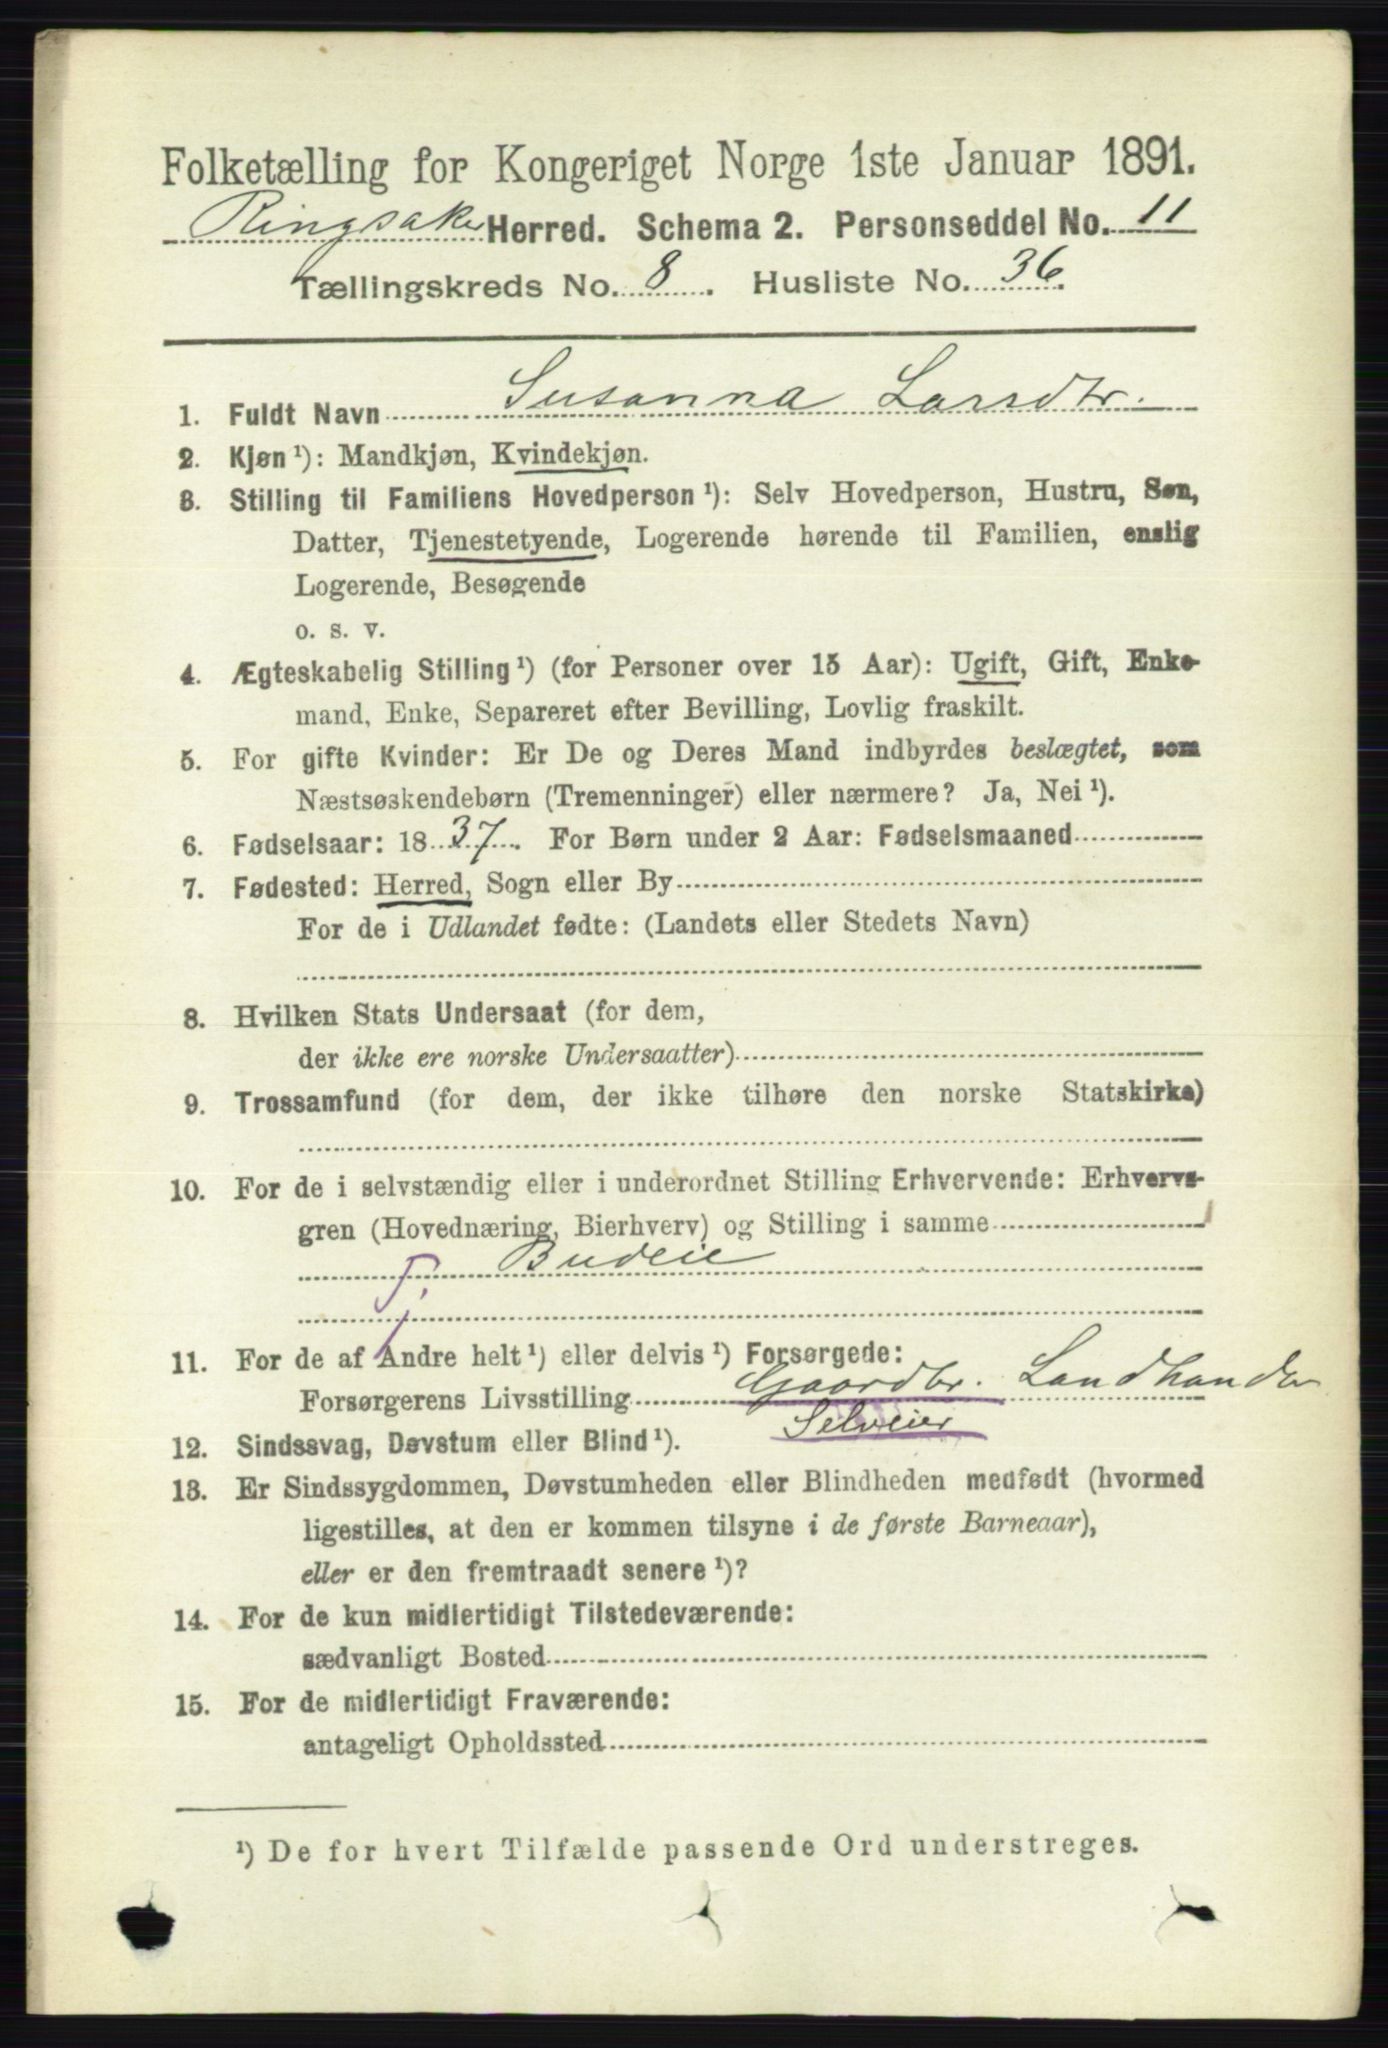 Folketælling for Kongeriget Norge 1ste Januar 1891.
Ringsaker Herred. Schema 2. Personseddel No. 11
Tællingskreds No. 8. Husliste No. 36.
1. Fuldt Navn Susanna Larsdtr.
2. Kjøn ¹): Mandkjøn, Kvindekjøn.
3. Stilling til Familiens Hovedperson ¹): Selv Hovedperson, Hustru, Søn,
Datter, Tjenestetyende, Logerende hørende til Familien, enslig
Logerende, Besøgende
o. s. v.
4. Ægteskabelig Stilling ¹) (for Personer over 15 Aar): Ugift, Gift, Enke-
mand, Enke, Separeret efter Bevilling, Lovlig fraskilt.
5. For gifte Kvinder: Er De og Deres Mand indbyrdes beslægtet, som
Næstsøskendebørn (Tremenninger) eller nærmere? Ja, Nei ¹).
6. Fødselsaar: 1837. For Børn under 2 Aar: Fødselsmaaned
7. Fødested: Herred, Sogn eller By
For de i Udlandet fødte: (Landets eller Stedets Navn)
8. Hvilken Stats Undersaat (for dem,
der ikke ere norske Undersaatter)
9. Trossamfund (for dem, der ikke tilhøre den norske Statskirke)
10. For de i selvstændig eller i underordnet Stilling Erhvervende: Erhvervs-
gren (Hovednæring, Bierhverv) og Stilling i samme
Budeie
11. For de af Andre helt ¹) eller delvis ¹) Forsørgede:
Forsørgerens Livsstilling Gaardbr. Landhandler
Selveier
12. Sindssvag, Døvstum eller Blind ¹).
13. Er Sindssygdommen, Døvstumheden eller Blindheden medfødt (hvormed
ligestilles, at den er kommen tilsyne i de første Barneaar),
eller er den fremtraadt senere ¹)?
14. For de kun midlertidigt Tilstedeværende:
sædvanligt Bosted
15. For de midlertidigt Fraværende:
antageligt Opholdssted
¹) De for hvert Tilfælde passende Ord understreges.